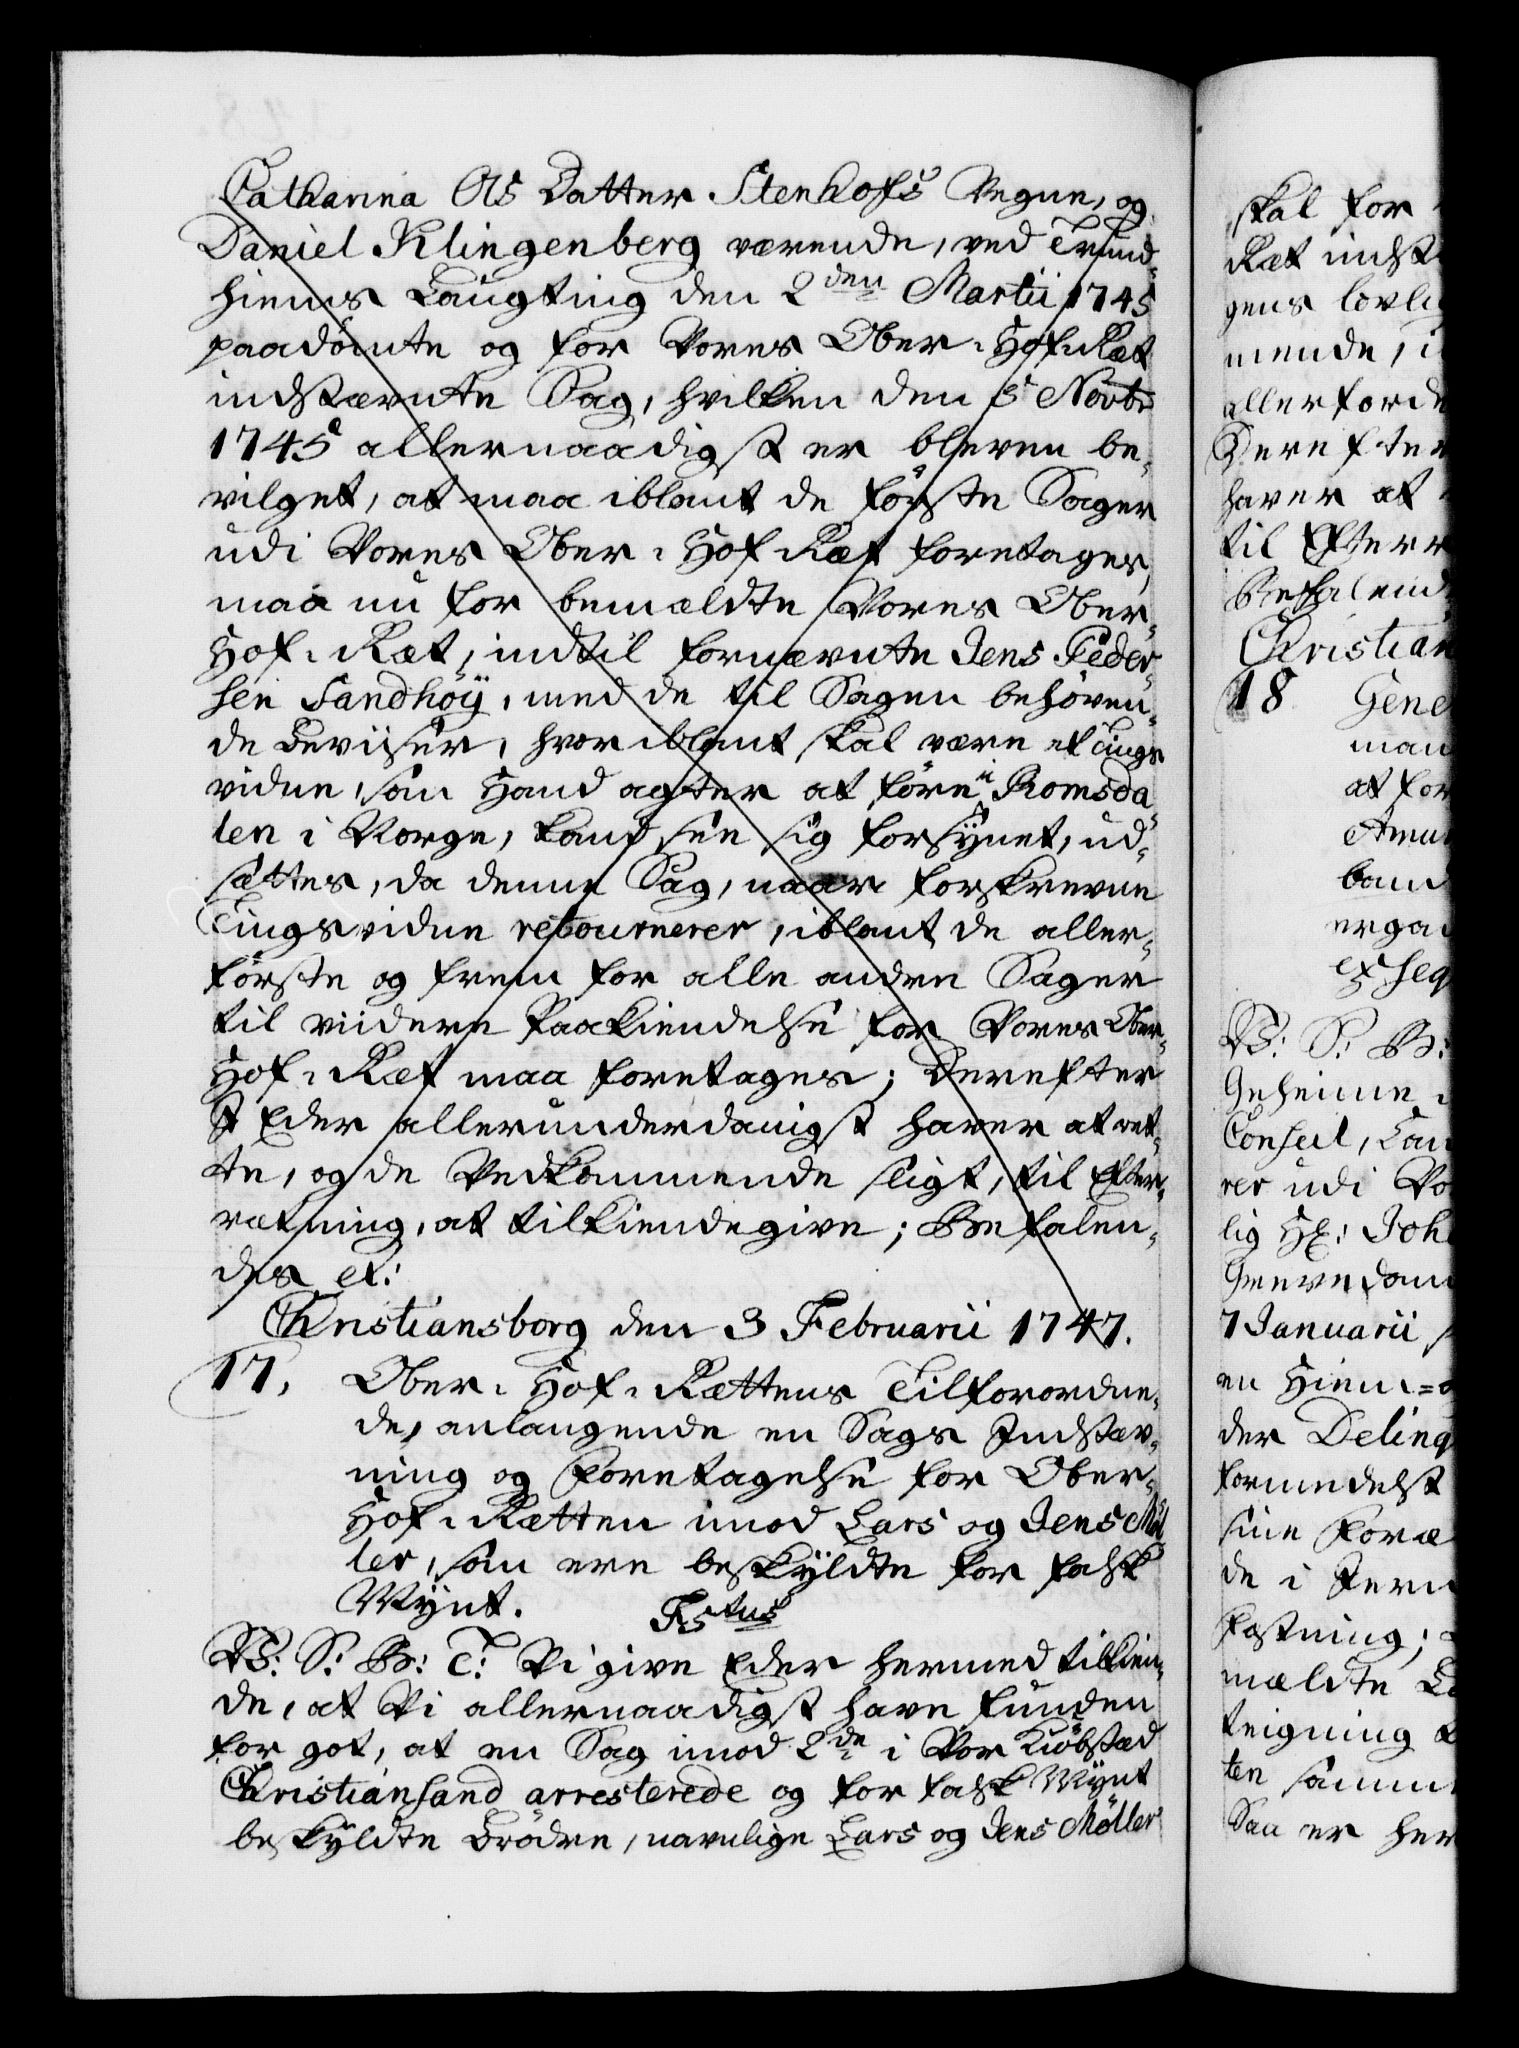 Catharina Ols Datter Stenhofs Vegne, og
Daniel Klingenberg værende, ved Trund-
hiems Laugting den 2den Martii 1745
paadömte og for Vores Ober-Hof-Ræt
indstævnte Sag, hvilken den 5 Novbr
1745 allernaadigst er bleven be-
vilget, at maa iblant de förste Sager
udi Vores Ober-Hof-Ræt foretages,
maa nu for bemældte Vores Ober-
Hof-Ræt, indtil fornævnte Jens Peder-
sen Sandhöÿ, med de til Sagen behöven-
de Beviiser, hvoriblant skal være et Tings-
vidne, som Hand agter at före i Romsda-
len i Norge, kand see sig forsÿnet, ud-
sættes, da denne Sag, naar forskrevne
Tingsvidne retournerer, iblant de aller-
förste og frem for alle andre Sager
til viidere Paakiendelse for Vores Ober-
Hof-Ræt maa foretages; Derefter
I Eder allerunderdanigst haver at ret-
te, og de Vedkommende sligt, til Efter-
rætning, at tilkiendegive; Befalen-
des etc:
Christiansborg den 3 Februarii 1747.
17. Ober-Hof-Rættens Tilforordne-
de, anlangende en Sags Indstæv-
ning og Foretagelse for Ober-
Hof-Rætten imod Lars og Jens Möl-
ler, som ere beskÿldte for falsk
Mÿnt. Fstus
V: S: G: T: Vi give Eder hermed tilkien-
de, at Vi allernaadigst have funden
for got, at en Sag imod 2de i Vor Kiöbstæd
Christiansand arresterede og for falsk Mÿnt
beskÿldte Brödre, navnlige Lars og Jens Möller
skal for
Ræt indst
gens lovli
mende, i
allerforde
Derefter
haver at
til Efterr
Befalend
Christian
18 Gene
man
at for
Amu
band
ergan
et seq
V: S: G:
Geheime
Conseil, Can
rer udi Vo
lig Hr: Joh
Grevedom
7 Januarii
en Hiem=
der Delinq
formedelst
sine Foræ
de i Jern
Fæstning;
mældte La
teigning
ten samme
Saa er her